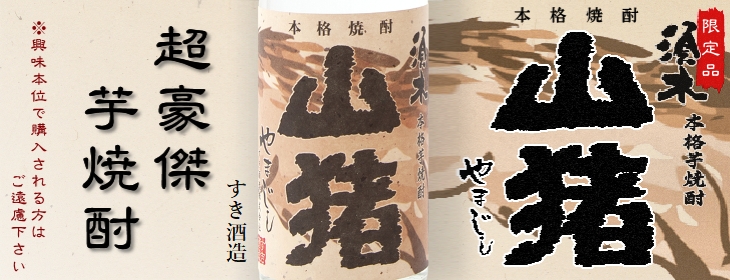 ※興味本位で購入される方は
ご遠慮下さい
超豪傑
芋焼酎
すき酒造
本格焼酎
須木
山猪
本格芋焼酎
やまじし
本格焼酎
限定品
須木
山猪
本格芋焼酎
やまじし